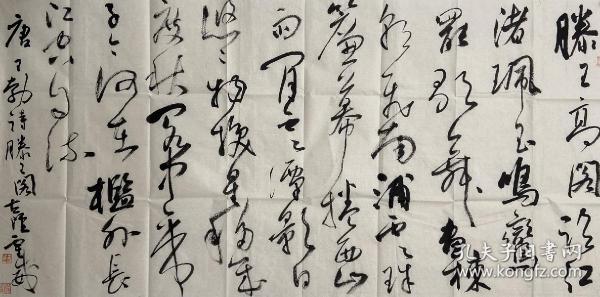 滕王高阁临江
渚珮玉鸣鸾
罷歌舞画棟
朝飛南浦云珠
簾幕捲西山
雨閒云潭影日
悠悠物換星移几
度秋阁中帝
子今何在檻外长
江空自流
唐王勃诗滕王阁
孔夫子旧书网
www.kongfz.com